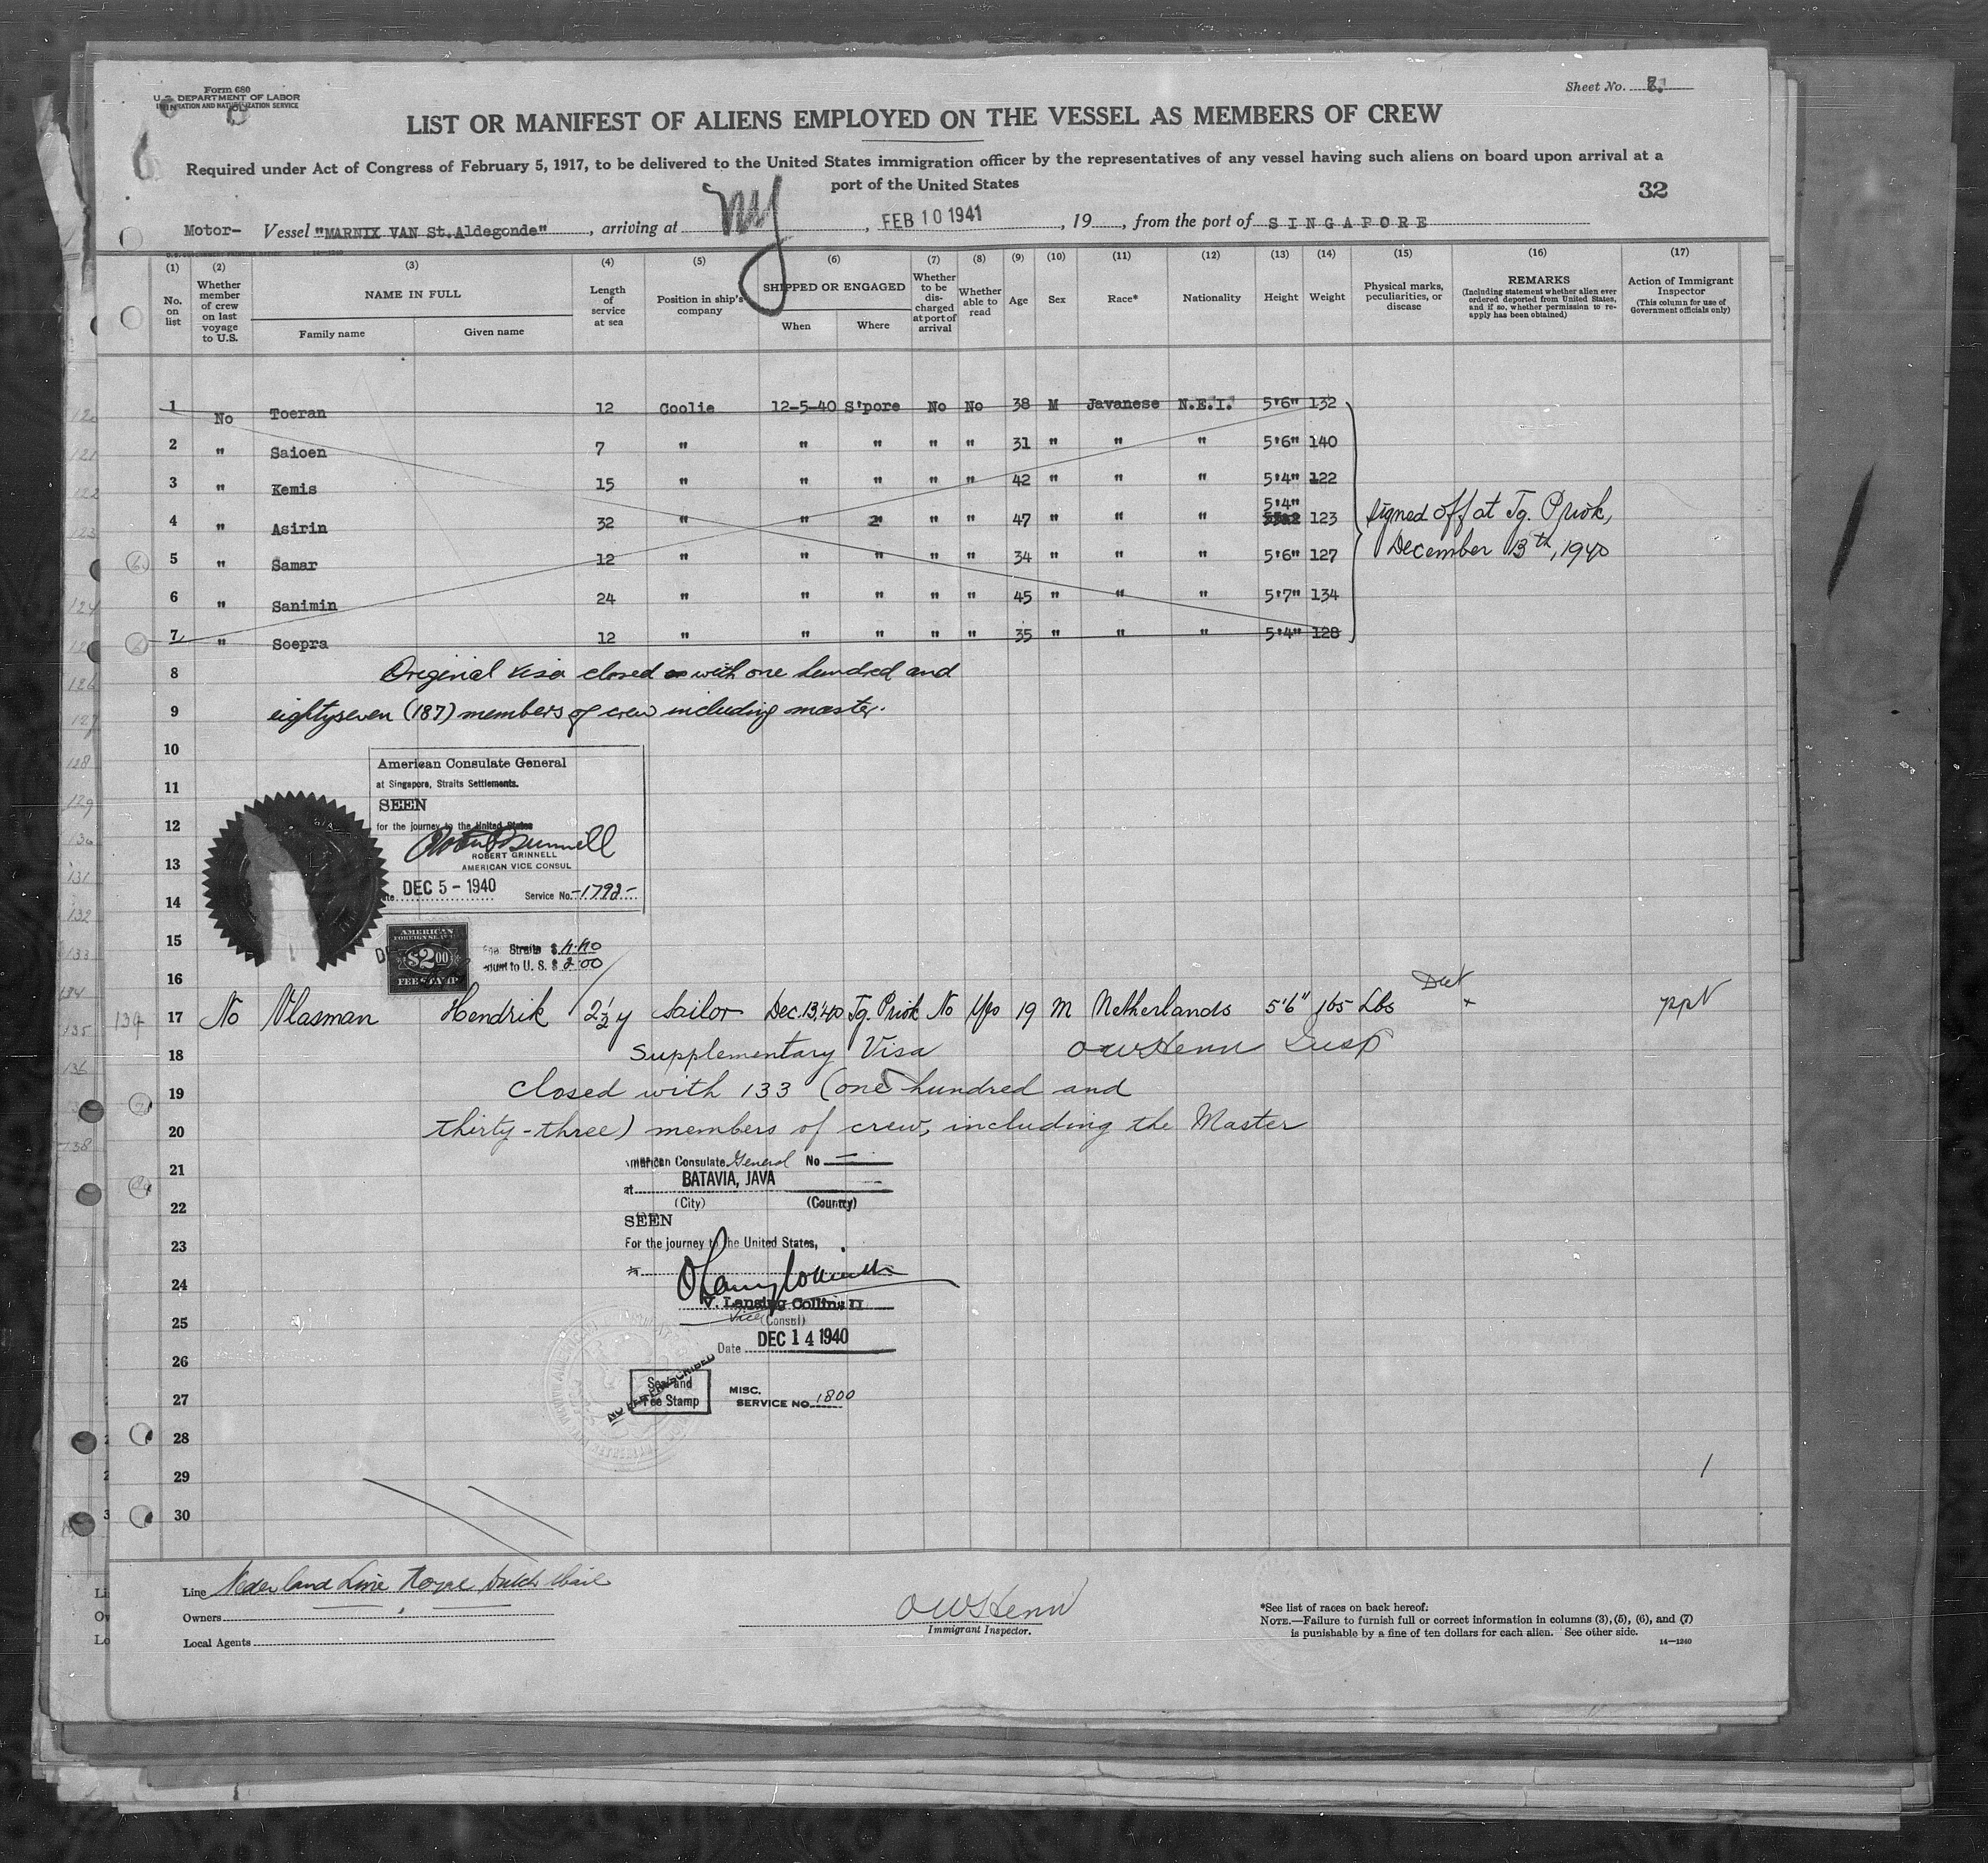 Form 680
U. S. DEPARTMENT OF LABOR
IMMIGRATION AND NATURALIZATION SERVICE
Sheet No. 8.
LIST OR MANIFEST OF ALIENS EMPLOYED ON THE VESSEL AS MEMBERS OF CREW
Required under Act of Congress of February 5, 1917, to be delivered to the United States immigration officer by the representatives of any vessel having such aliens on board upon arrival at a
port of the United States
32
Motor- Vessel "MARNIX VAN St.Aldegonde", arriving at NY, FEB 10 1941, 19, from the port of SINGAPORE
(1) (2) (3) (4) (5) (6) (7) (8) (9) (10) (11) (12) (13) (14) (15) (16) (17)
No. on list
Whether member of crew on last voyage to U.S.
NAME IN FULL
Family name
Given name
Length of service at sea
Position in ship's company
SHIPPED OR ENGAGED
When
Where
Whether to be discharged at port of arrival
Whether able to read
Age
Sex
Race*
Nationality
Height
Weight
Physical marks, peculiarities, or disease
REMARKS
(Including statement whether alien ever ordered deported from United States, and if so, whether permission to reapply has been obtained)
Action of Immigrant Inspector
(This column for use of Government officials only)
1 No Toeran 12 Coolie 12-5-40 S'pore No No 38 M Javanese N.E.I. 5'6" 132
2 " Saioen 7 " " " " " 31 " " " 5'6" 140
3 " Kemis 15 " " " " " 42 " " " 5'4" 122
4 " Asirin 32 " " " " " 47 " " " 5'4" 123
5 " Samar 12 " " " " " 34 " " " 5'6" 127
6 " Sanimin 24 " " " " " 45 " " " 5'7" 134
7 " Soepra 12 " " " " " 35 " " " 5'4" 128
signed off at Tg. Priok,
December 13th, 1940
8 Original visa closed with one hundred and
9 eightyseven (187) members of crew including master.
10
American Consulate General
at Singapore, Straits Settlements.
11
SEEN
12
for the journey to the United States
ROBERT GRINNELL
13
AMERICAN VICE CONSUL
DEC 5 - 1940
Service No. -1792-
14
15
AMERICAN
FOREIGN SERVICE
$2.00
FEE STAMP
Straits $ 4.40
to U. S. $ 2.00
16
17 134 No Vlasman Hendrik 2½ y Sailor Dec.13,'40 Tg. Priok No Yes 19 M Netherlands 5'6" 165 Lbs
18 Supplementary Visa OWHenn Insp
19 Closed with 133 (one hundred and
20 thirty-three) members of crew, including the Master
21
American Consulate General No —
at BATAVIA, JAVA
22
(City) (Country)
SEEN
23
For the journey to the United States,
24
V. Lansing Collins II
25
Vice (Consul)
Date DEC 14 1940
26
NO FEE PRESCRIBED
Seal and
Fee Stamp
27
MISC.
SERVICE NO. 1800
28
29
30
Line Nederland Line Royal Dutch Mail
Owners
Local Agents
OWHenn
Immigrant Inspector.
*See list of races on back hereof.
NOTE.—Failure to furnish full or correct information in columns (3), (5), (6), and (7)
is punishable by a fine of ten dollars for each alien. See other side.
14—1240